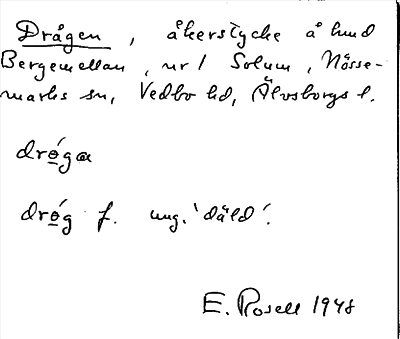 Drågen, åkerstycke å lund
Bergemellan, nr 1 Solum, Nösse-
marks sn, Vedbo hd, Älvsborgs l.
dróga
dróg f. ung. 'däld'.
E. Rosell 1948